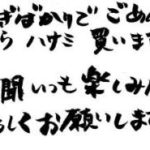 ぎばかりで ごめん
ら ハナミ 買います
聞 いつも 楽しみ
しくお願いします